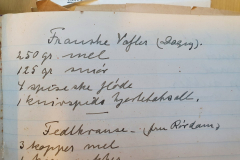 Franske Vafler (Dagny).
250 gr. mel
125 gr smör
4 spiseske flöde
1 knivspids hjortetaksalt.
Fedtkranse - (fru Rördam)
3 kopper mel